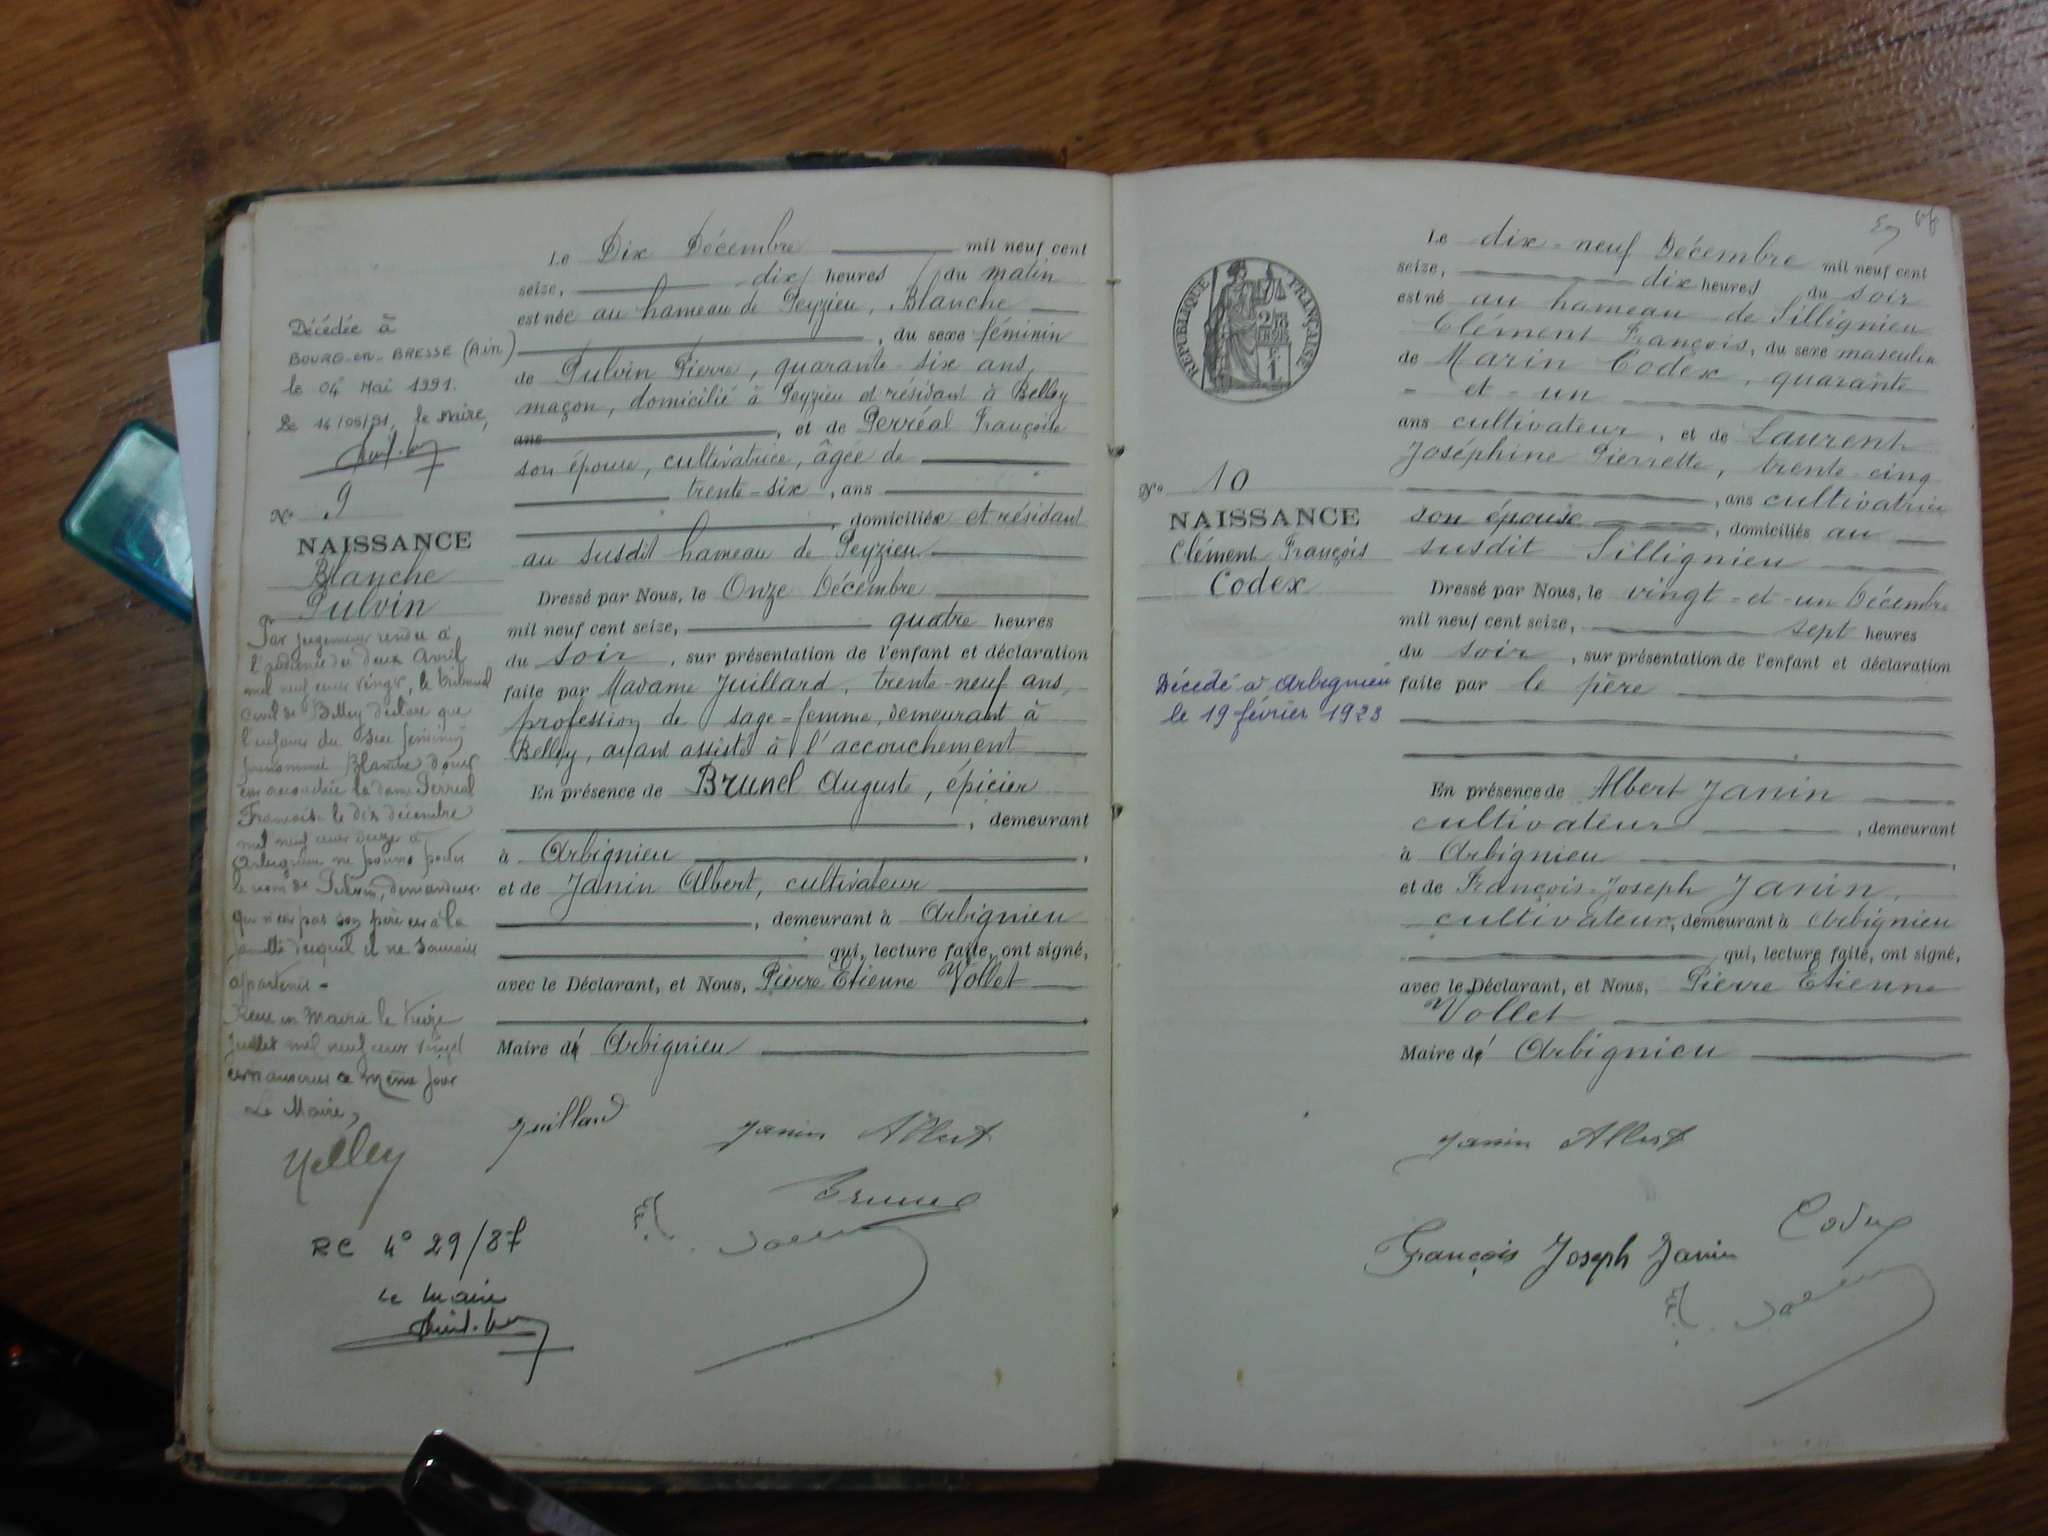 Le Dix Décembre mil neuf cent
seize, dix heures du matin
est née au hameau de Peyzieu, Blanche
, du sexe féminin
de Pulvin Pierre, quarante-six ans,
maçon, domicilié à Peyzieu et résidant à Belley
ans , et de Perréal Françoise
son épouse, cultivatrice, âgée de
trente-six , ans
, domiciliée et résidant
au susdit hameau de Peyzieu
Dressé par Nous, le Onze Décembre
mil neuf cent seize, quatre heures
du soir , sur présentation de l'enfant et déclaration
faite par Madame Juillard, trente-neuf ans,
profession de sage-femme, demeurant à
Belley, ayant assisté à l'accouchement
En présence de Brunel Auguste, épicier
, demeurant
à Arbignieu ,
et de Janin Albert, cultivateur
, demeurant à Arbignieu
qui, lecture faite, ont signé,
avec le Déclarant, et Nous, Pierre Etienne Vollet
Maire d' Arbignieu
Juillard Janin Albert
Brunel
Décédée à
BOURG-en-BRESSE (Ain)
le 04 Mai 1991.
Le 14/05/91, le Maire,
N° 9
NAISSANCE
Blanche
Pulvin
Par jugement rendu à
l'audience du deux Avril
mil neuf cent vingt, le tribunal
civil de Belley déclare que
l'enfant du sexe féminin
prénommé Blanche dont
est accouchée la dame Perréal
Françoise le dix décembre
mil neuf cent seize à
Arbignieu ne pourra porter
le nom de Pulvin, demandeur
qui n'est pas son père et à la
famille duquel il ne saurait
appartenir -
en Mairie le treize
Juillet mil neuf cent vingt
et transcrit ce même jour
Le Maire,
RC 4° 29/87
le Maire
57
Le dix-neuf Décembre mil neuf cent
seize, dix heures du soir
est né au hameau de Sillignieu
Clément François, du sexe masculin
de Marin Codex, quarante
-et-un
ans cultivateur, et de Laurent
Joséphine Pierrette, trente-cinq
, ans cultivatrice
son épouse , domiciliés au
susdit Sillignieu
Dressé par Nous, le vingt-et-un Décembre
mil neuf cent seize, sept heures
du soir , sur présentation de l'enfant et déclaration
faite par le père
En présence de Albert Janin
cultivateur , demeurant
à Arbignieu ,
et de François-Joseph Janin,
cultivateur, demeurant à Arbignieu
qui, lecture faite, ont signé,
avec le Déclarant, et Nous, Pierre Etienne
Vollet
Maire d' Arbignieu
Janin Albert
Codex
François Joseph Janin
REPUBLIQUE FRANÇAISE
N° 10
NAISSANCE
Clément François
Codex
Décédé à Arbignieu
le 19 février 1923